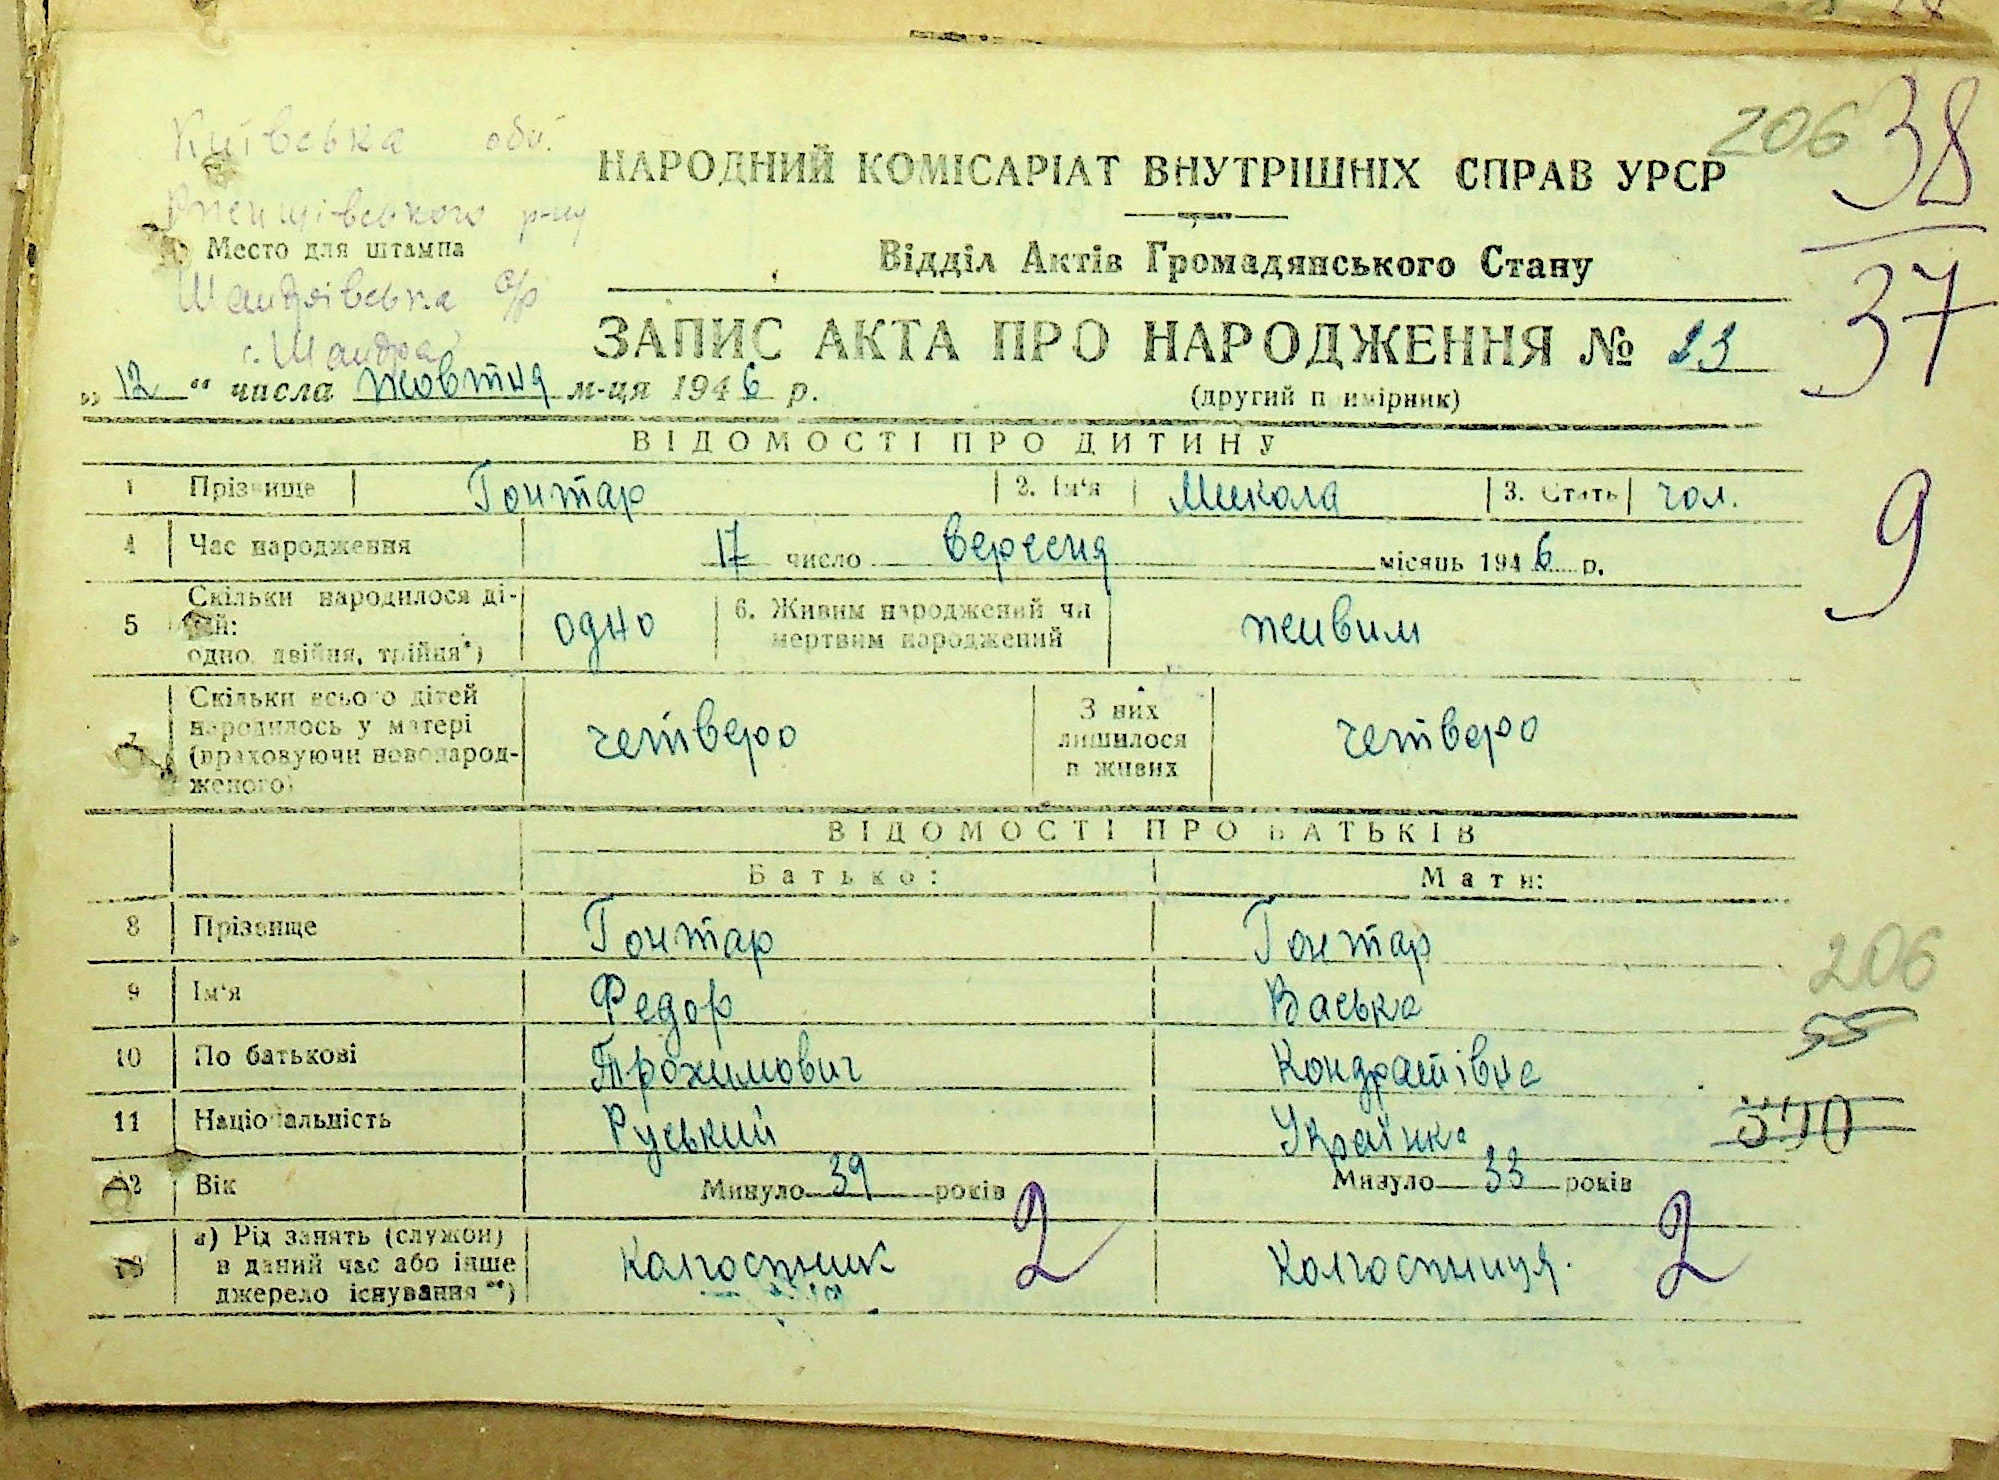 206 38
Київська обл.
НАРОДНИЙ КОМІСАРІАТ ВНУТРІШНІХ СПРАВ УРСР
Ржищівського р-ну
Место для штампа
Відділ Актів Громадянського Стану
37
Шандрівська с/р
с. Шандра
ЗАПИС АКТА ПРО НАРОДЖЕННЯ № 23
„ 12 “ числа жовтня м-ця 1946 р.
(другий примірник)
ВІДОМОСТІ ПРО ДИТИНУ
1 Прізвище Гонтар 2. Ім'я Микола 3. Стать чол.
9
4 Час народження 17 число вересня місяць 1946 р.
5 Скільки народилося ді-
тей:
одно, двійня, трійня*) одно 6. Живим народжений чи
мертвим народжений живим
7 Скільки всього дітей
народилось у матері
(враховуючи новонарод-
женого) четверо З них
лишилося
в живих четверо
ВІДОМОСТІ ПРО БАТЬКІВ
Батько: Мати:
8 Прізвище Гонтар Гонтар
206
9 Ім'я Федор Васька
55
10 По батькові Трохимович Кондратівна
11 Національність Руський Українка
12 Вік Минуло 39 років Минуло 33 років
13 а) Рід занять (служби)
в даний час або інше
джерело існування **) Колгоспник 2 Колгоспниця. 2